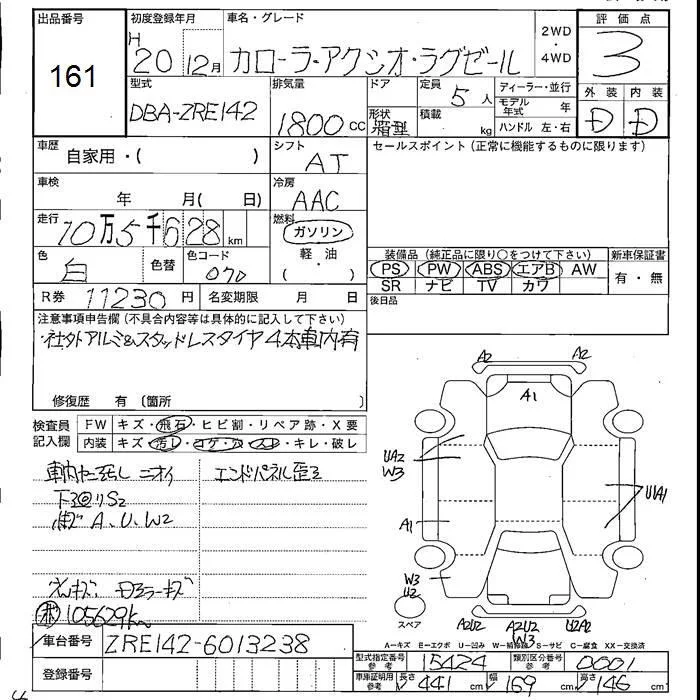 出品番号
161
初度登録年月
H 20 12月
車名・グレード
カローラ・アクシオ・ラグゼール
2WD
・
4WD
評価点
3
型式
DBA-ZRE142
排気量
1800 cc
ドア
形状
箱型
定員
5人
積載
kg
ディーラー・並行
モデル年式 年
ハンドル 左・右
外装 内装
D D
車歴
自家用・( )
シフト
AT
セールスポイント (正常に機能するものに限ります)
車検
年 月( 日)
冷房
AAC
走行
10万5千628km
燃料
ガソリン
・
軽・油
( )
色
白
色替
色コード
070
装備品 (純正品に限り○をつけて下さい)
PS PW ABS エアB AW
SR ナビ TV カワ
新車保証書
有・無
R券 11230円
名変期限 月 日
後日品
注意事項申告欄 (不具合内容等は具体的に記入して下さい)
・社外アルミ&スタッドレスタイヤ4本車内有
修復歴 有 (箇所 )
検査員
記入欄
FW キズ・飛石・ヒビ割・リペア跡・X要
内装 キズ・汚レ・コゲ・穴・スレ・キレ・破レ
車内ヤニ汚レ ニオイ
エンドパネル歪ミ
下廻りS2
A、U、W2
ドアミラーキズ
105629km
A2 A2
A1
UA2
W3
A1
U1A1
W3
U2
スペア
A2U2 A2U2 U2A2
W3
A-キズ E-エクボ U-凹み W-補修跡 S-サビ C-腐食 XX-交換済
車台番号
ZRE142-6013238
登録番号
型式指定番号
参考
15424
類別区分番号
参考
0001
車庫証明用
参考
長さ 441 cm
幅 169 cm
高さ 146 cm